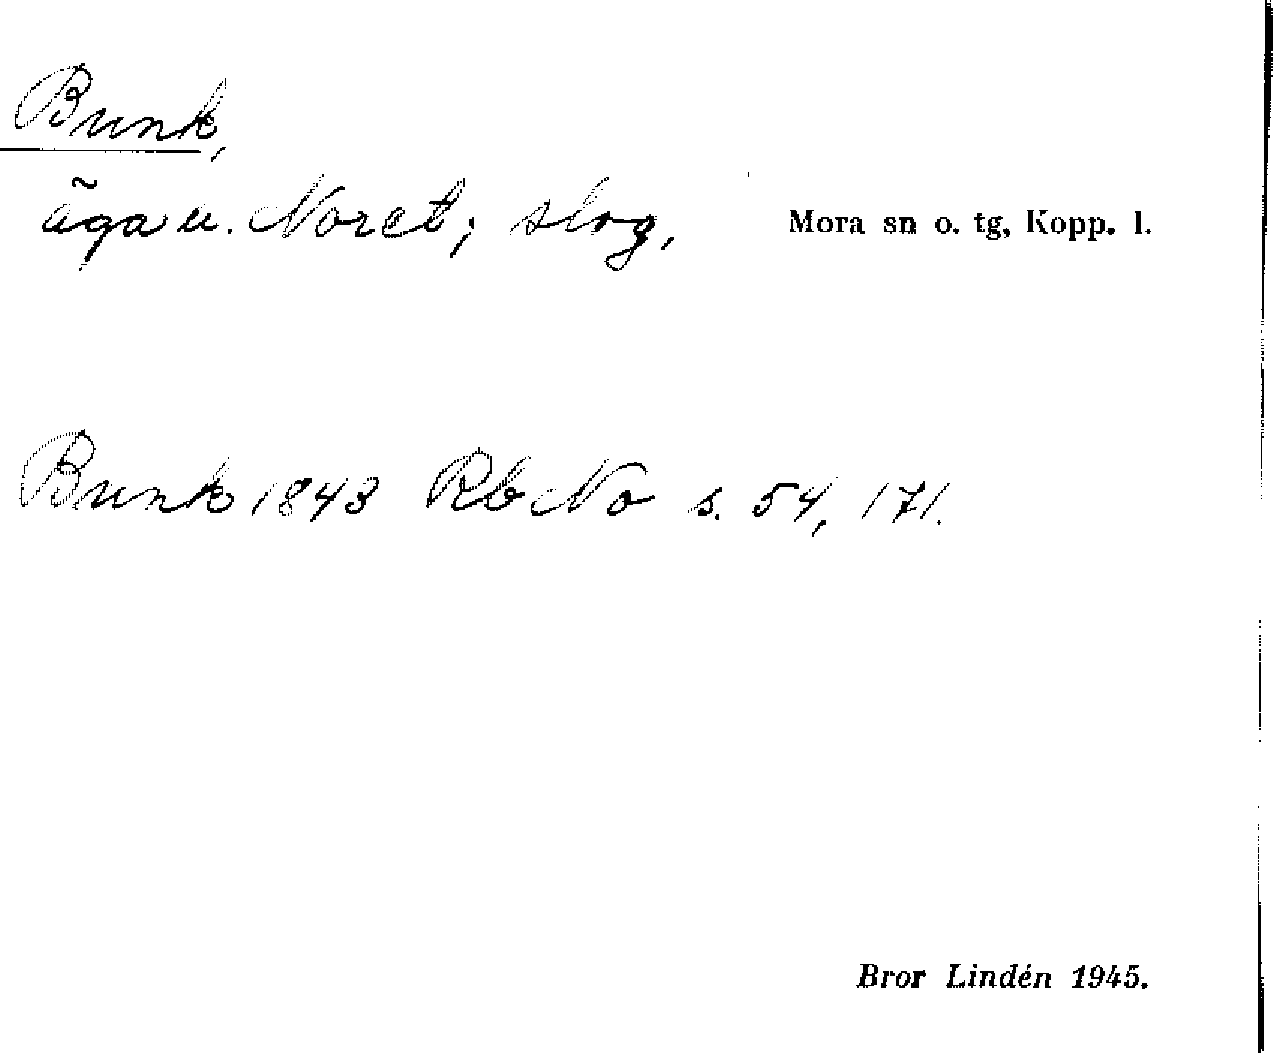 Bunk,
äga u. Noret; slog, Mora sn o. tg, Kopp. l.
Bunk 1843 Rb No s. 54, 171.
Bror Lindén 1945.